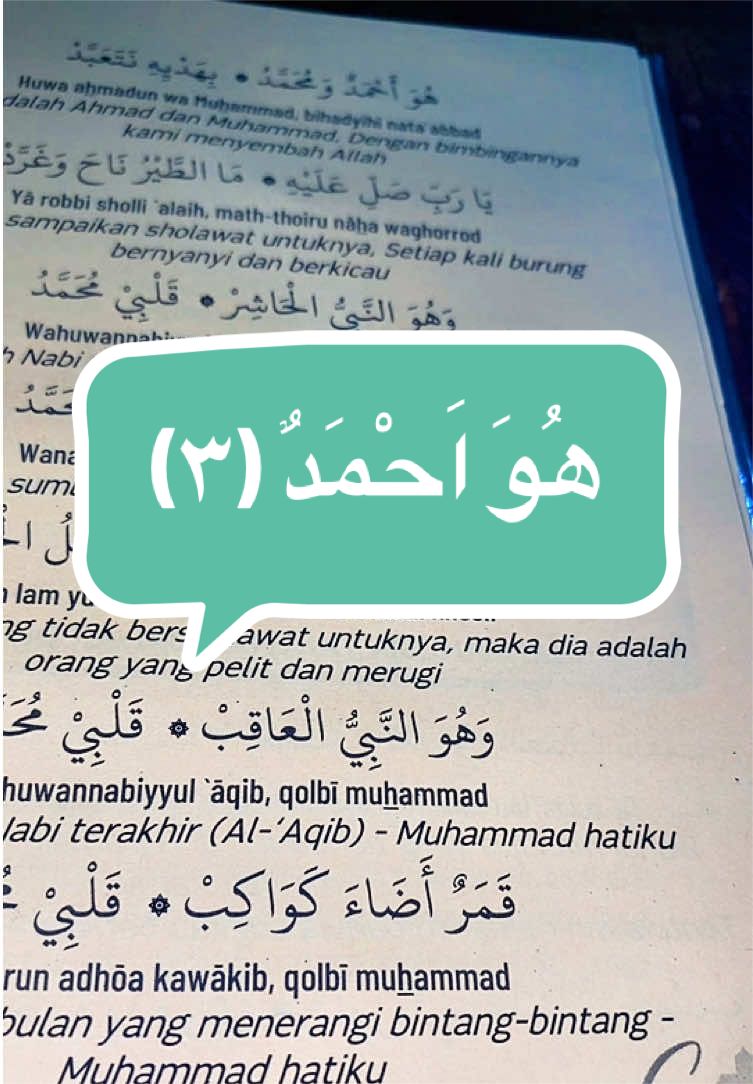 هُوَ أَحْمَدٌ وَمُحَمَّدُ • بِهَدْيِهِ نَتَعَبَّدْ
Huwa aḥmadun wa Muḥammad, bihadyihi nata`abbad
dalah Ahmad dan Muhammad, Dengan bimbingannya
kami menyembah Allah
يَا رَبِّ صَلِّ عَلَيْهِ • مَا الطَّيْرُ نَاحَ وَغَرَّدْ
Yā robbi sholli `alaih, math-thoiru nāḥa waghorrod
sampaikan sholawat untuknya, Setiap kali burung
bernyanyi dan berkicau
وَهُوَ النَّبِيُّ الْحَاشِرْ • قَلْبِيْ مُحَمَّدُ
Nabi
هُوَ اَحْمَدٌ (٣)
lam
ng tidak awat untuknya, maka dia adalah
orang yang pelit dan merugi
وَهُوَ النَّبِيُّ الْعَاقِبْ ۞ قَلْبِيْ مُحَ
huwannabiyyul `āqib, qolbī muḥammad
labi terakhir (Al-‘Aqib) - Muhammad hatiku
قَمَرٌ أَضَاءَ كَوَاكِبْ ۞ قَلْبِيْ
run adhōa kawākib, qolbī muḥammad
bulan yang menerangi bintang-bintang -
Muhammad hatiku